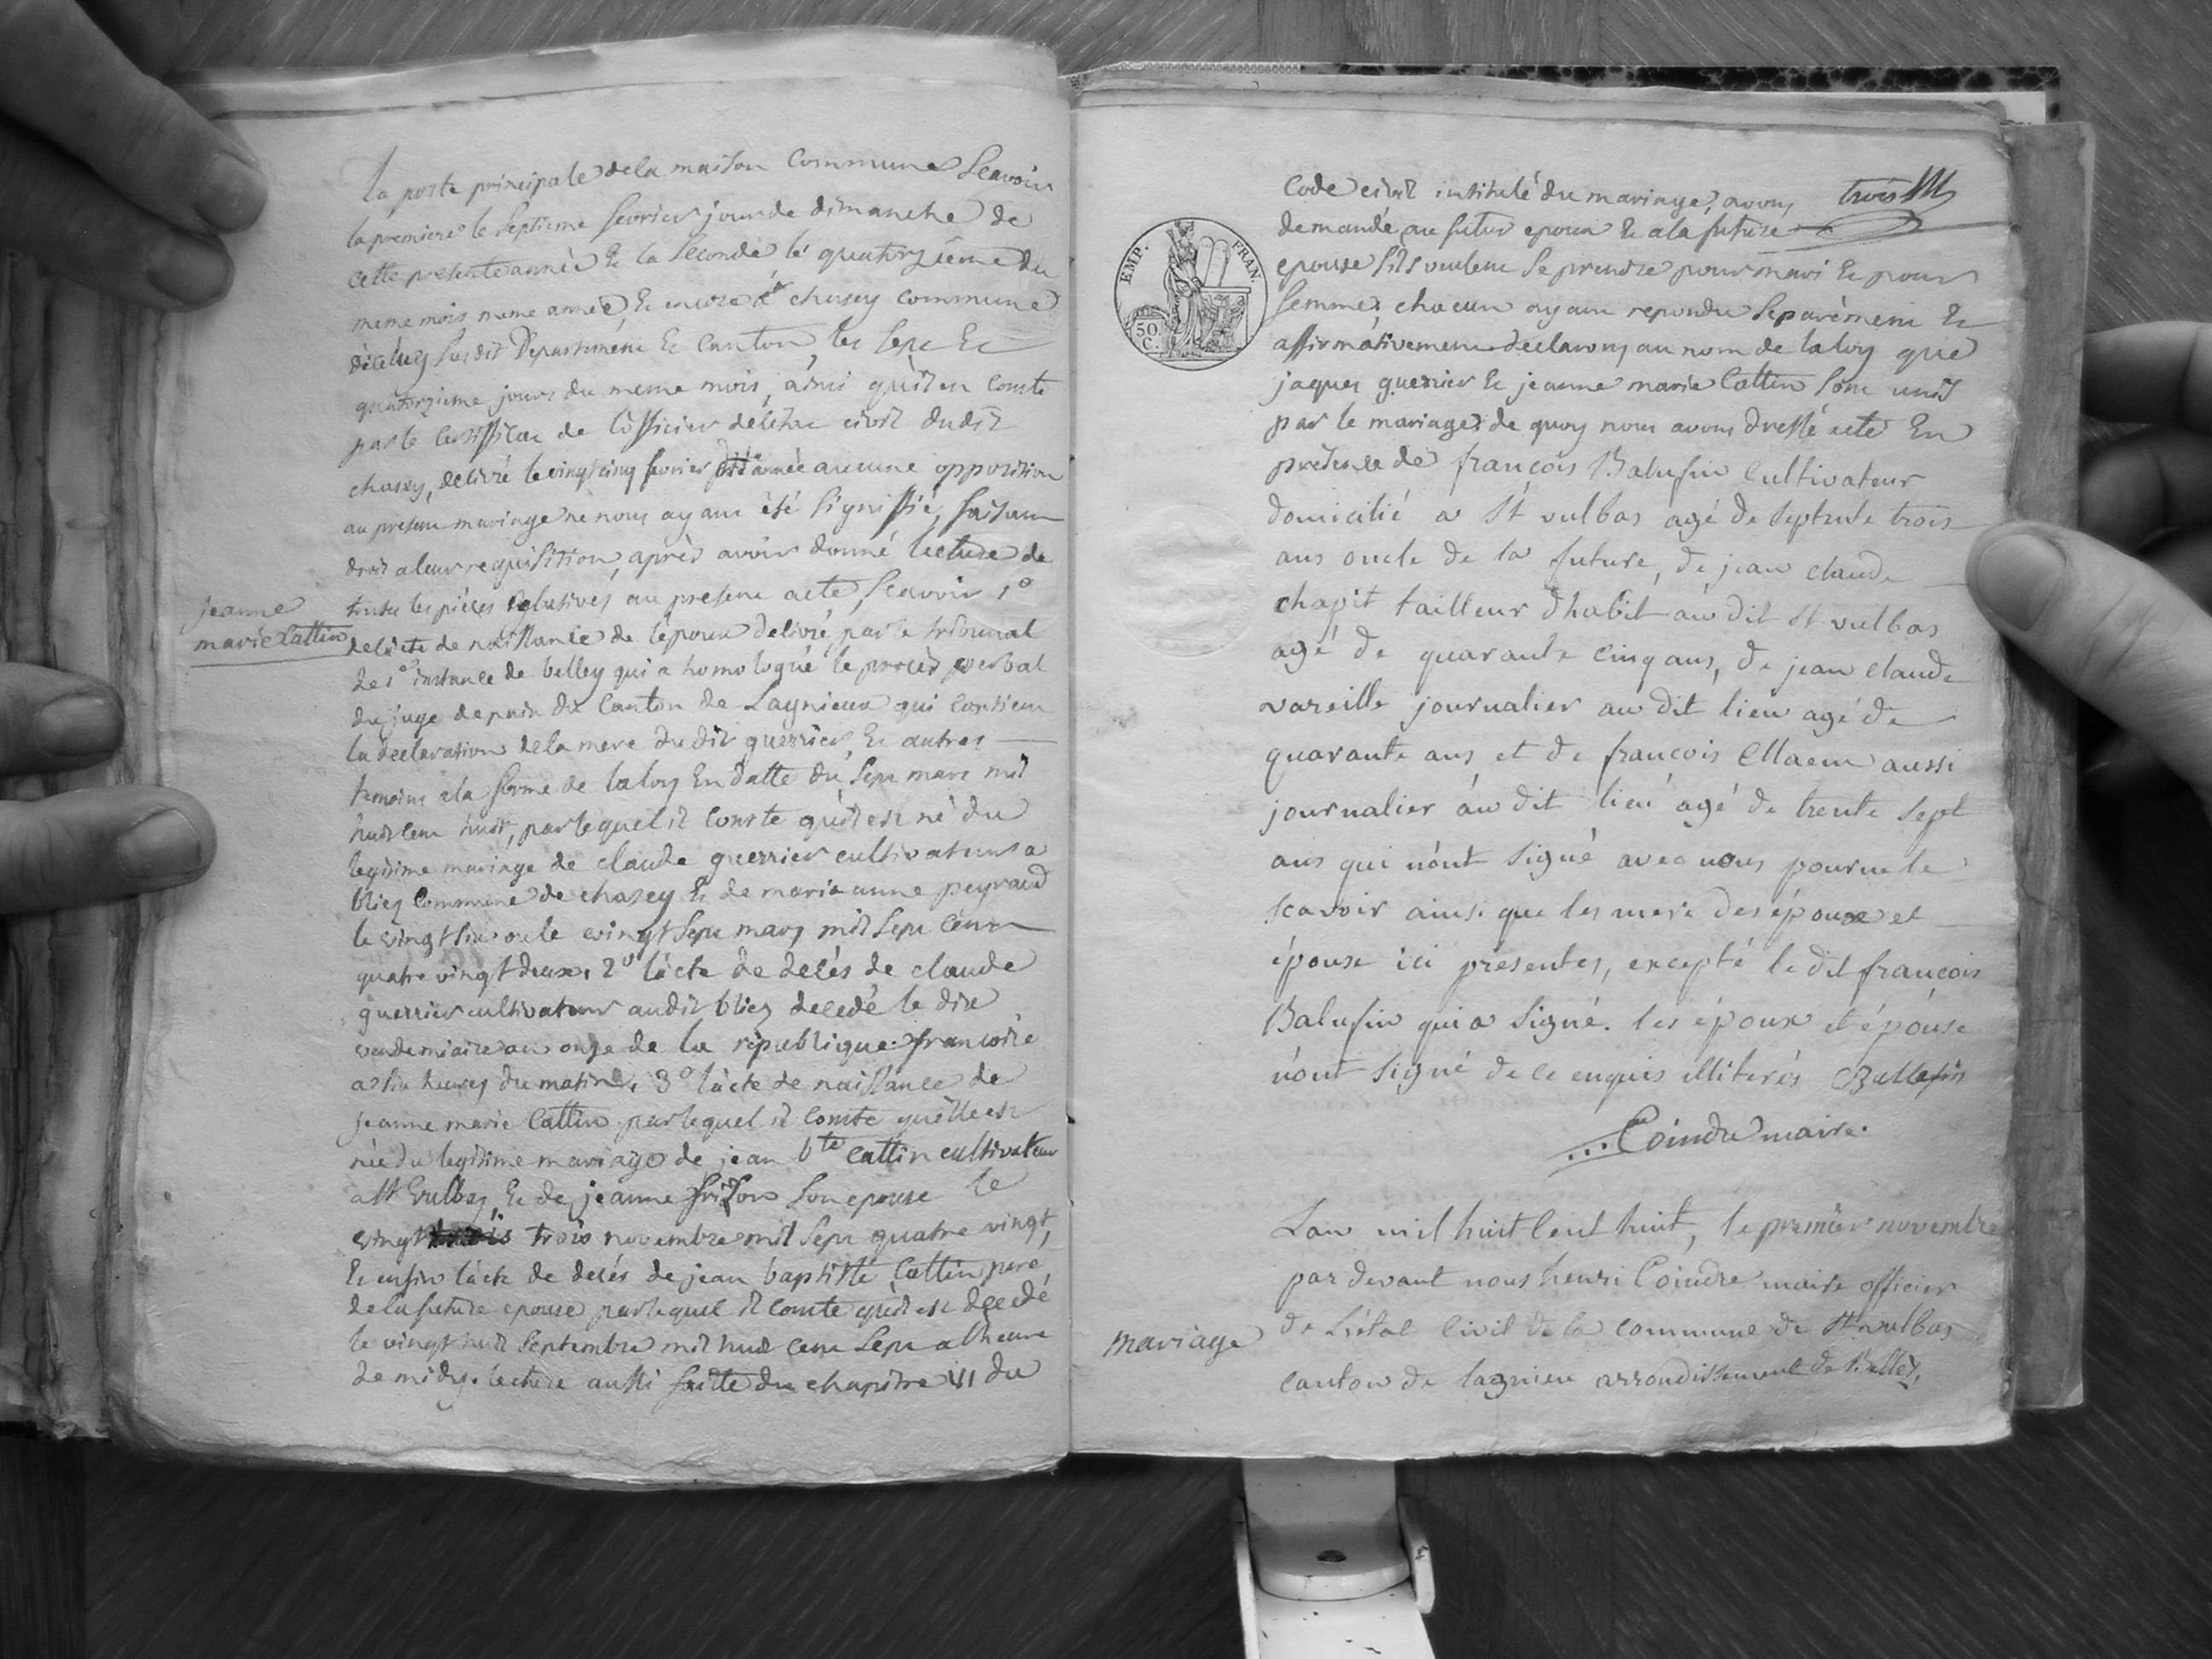 la porte principale de la maison Commune Scavoir
la premiere le Septieme fevrier jour de dimanche de
cette presente année Et la Seconde le quatorzieme du
meme mois meme année, Et encore à chasey commune
dudit Departement Et Canton, les Sept Et
quatorzieme jours du meme mois, ainsi quil en Conste
par le Certifficat de L'officier de l'etat civil dudit
chasey, delivré le vingt cinq fevrier année aucune opposition
au present mariage ne nous ayant été Signiffié, faisant
droit a leur requisition, après avoir donné lecture de
toutes les pièces relatives au present acte, Scavoir 1°
jeanne
marie Cattin
de l'acte de naissance de l'epoux delivré par le tribunal
de 1e instance de belley qui a homologué le procès verbal
du juge de paix du Canton de Lagnieux qui Contient
la declaration de la mere du dit guerrier, Et autres
temoins a la forme de la loy En datte du Sept mars mil
huit Cent huit, par lequel il Conste quil est né du
legitime mariage de claude guerrier cultivateur a
bliez Commune de chasey Et de marie anne peyraud
le vingt Six ou le vingt Sept mars mil Sept Cent
quatre vingt deux. 2° l'acte de decés de claude
guerrier cultivateur audit bliez decedé le dix
vendemiaire an onze de la république francoise
a Six heures du matin. 3° l'acte de naissance de
jeanne marie Cattin par lequel il Conste quelle est
née du legitime mariage de jean bte Cattin cultivateur
a St Vulbas, Et de jeanne Son epouse le
vingt trois novembre mil Sept quatre vingt,
Et enfin l'acte de decés de jean baptiste Cattin pere
de la future epouse par lequel il Conste quil est decedé
le vingt huit Septembre mil huit Cent Sept a l'heure
de midy. lecture aussi faitte du chapitre VI du
Code civil intitulé du mariage, avons trois
demandé au futur epoux Et a la future
epouse S'ils veulent Se prendre pour mari Et pour
femme; chacun ayant repondu Separément Et
affirmativement declarons au nom de la loy que
jaques guerrier Et jeanne marie Cattin Sont unis
par le mariage; de quoy nous avons dressé acte En
presence de françois Balufin Cultivateur
domicilié a St vulbas agé de Septente trois
ans oncle de la future, de jean claude
chapit tailleur d'habit au dit St vulbas
agé de quarante cinq ans, de jean claude
vareille journalier au dit lieu agé de
quarante ans et de françois aussi
journalier au dit lieu agé de trente Sept
ans qui n'ont Signé avec nous pour ne le
Scavoir ainsi que les mere des époux et
épouse ici présentes, excepté le dit françois
Balufin qui a Signé. les époux et épouse
n'ont Signé de ce enquis illiterés Ballefin
Coindre maire.
EMP. FRAN.
50
C.
L'an mil huit Cent huit, le premier novembre
par devant nous henri Coindre maire officier
mariage
de L'état Civil de la commune de St vulbas
canton de lagnieu arrondissement de Belley,